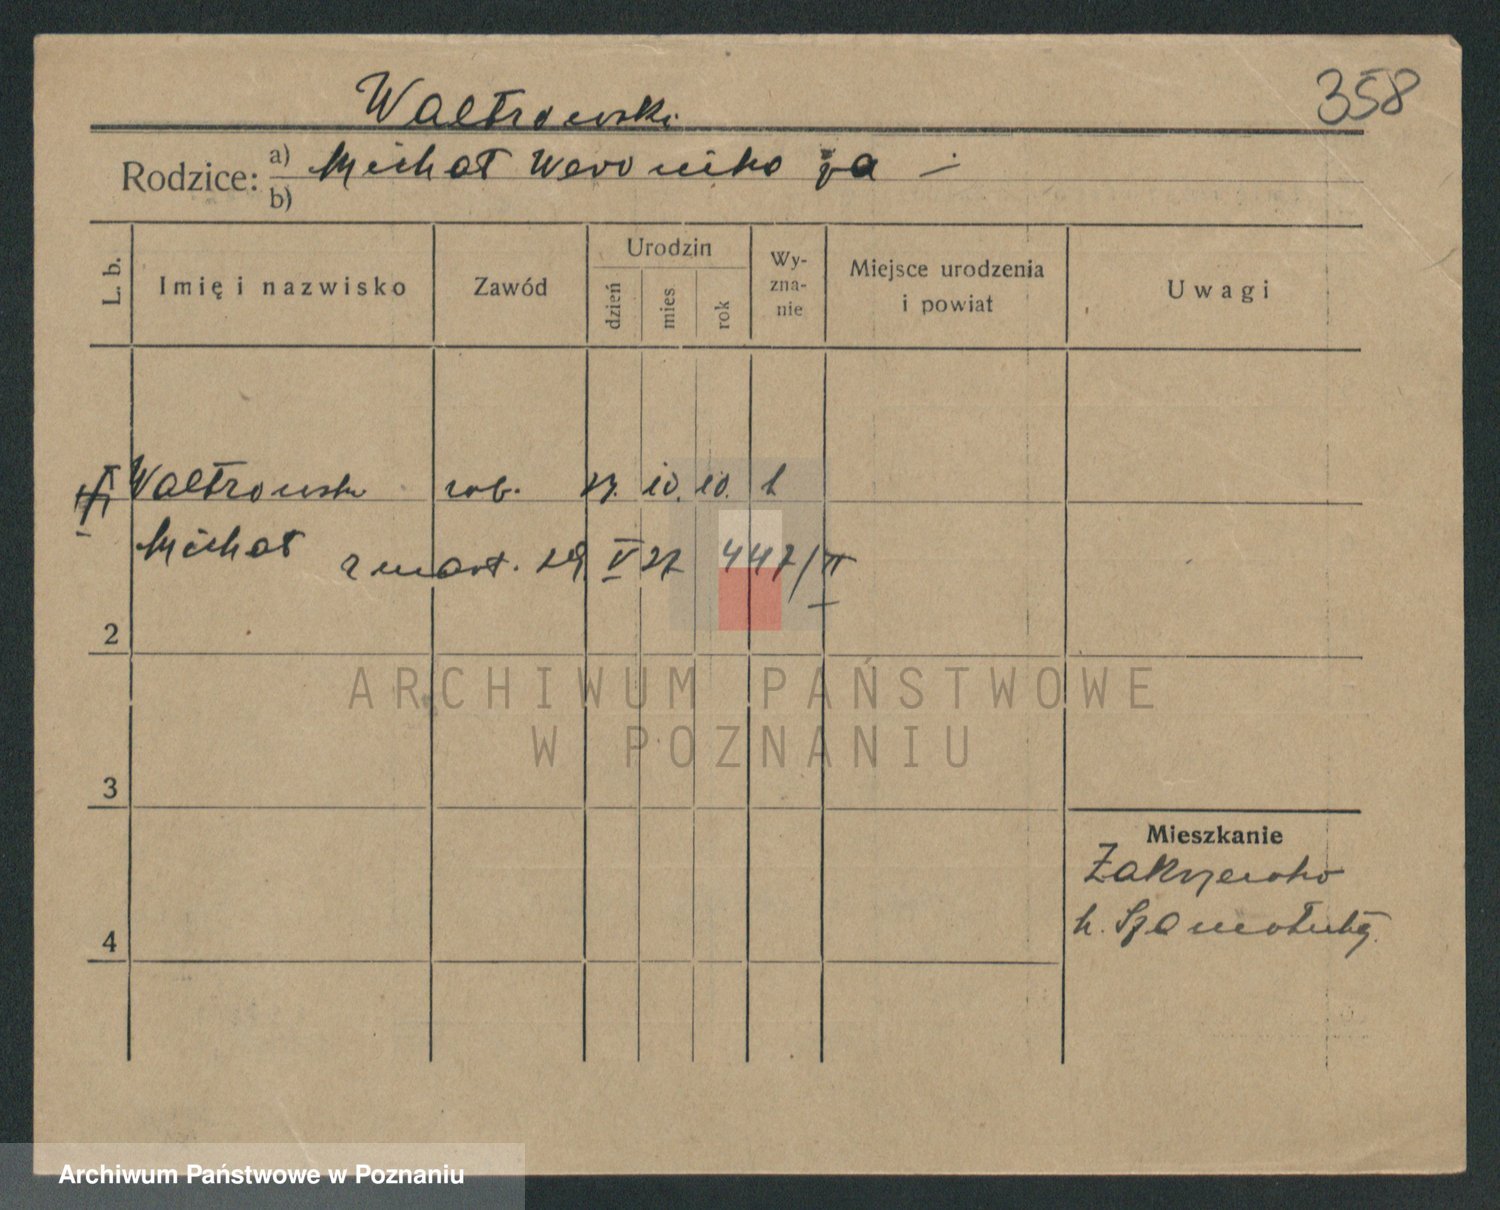 358
Waltrowski
Rodzice: a) Michał Weronika
b)
L. b.
Imię i nazwisko
Zawód
Urodzin
dzień
mies
rok
Wy-
zna-
nie
Miejsce urodzenia
i powiat
Uwagi
Waltrowski rob. 27. 10. 10. k
Michał
zmart. 29 V 27 447/II
2
3
4
Mieszkanie
Zakrzewko
k. Szamotuły.
ARCHIWUM PAŃSTWOWE
W POZNANIU
Archiwum Państwowe w Poznaniu